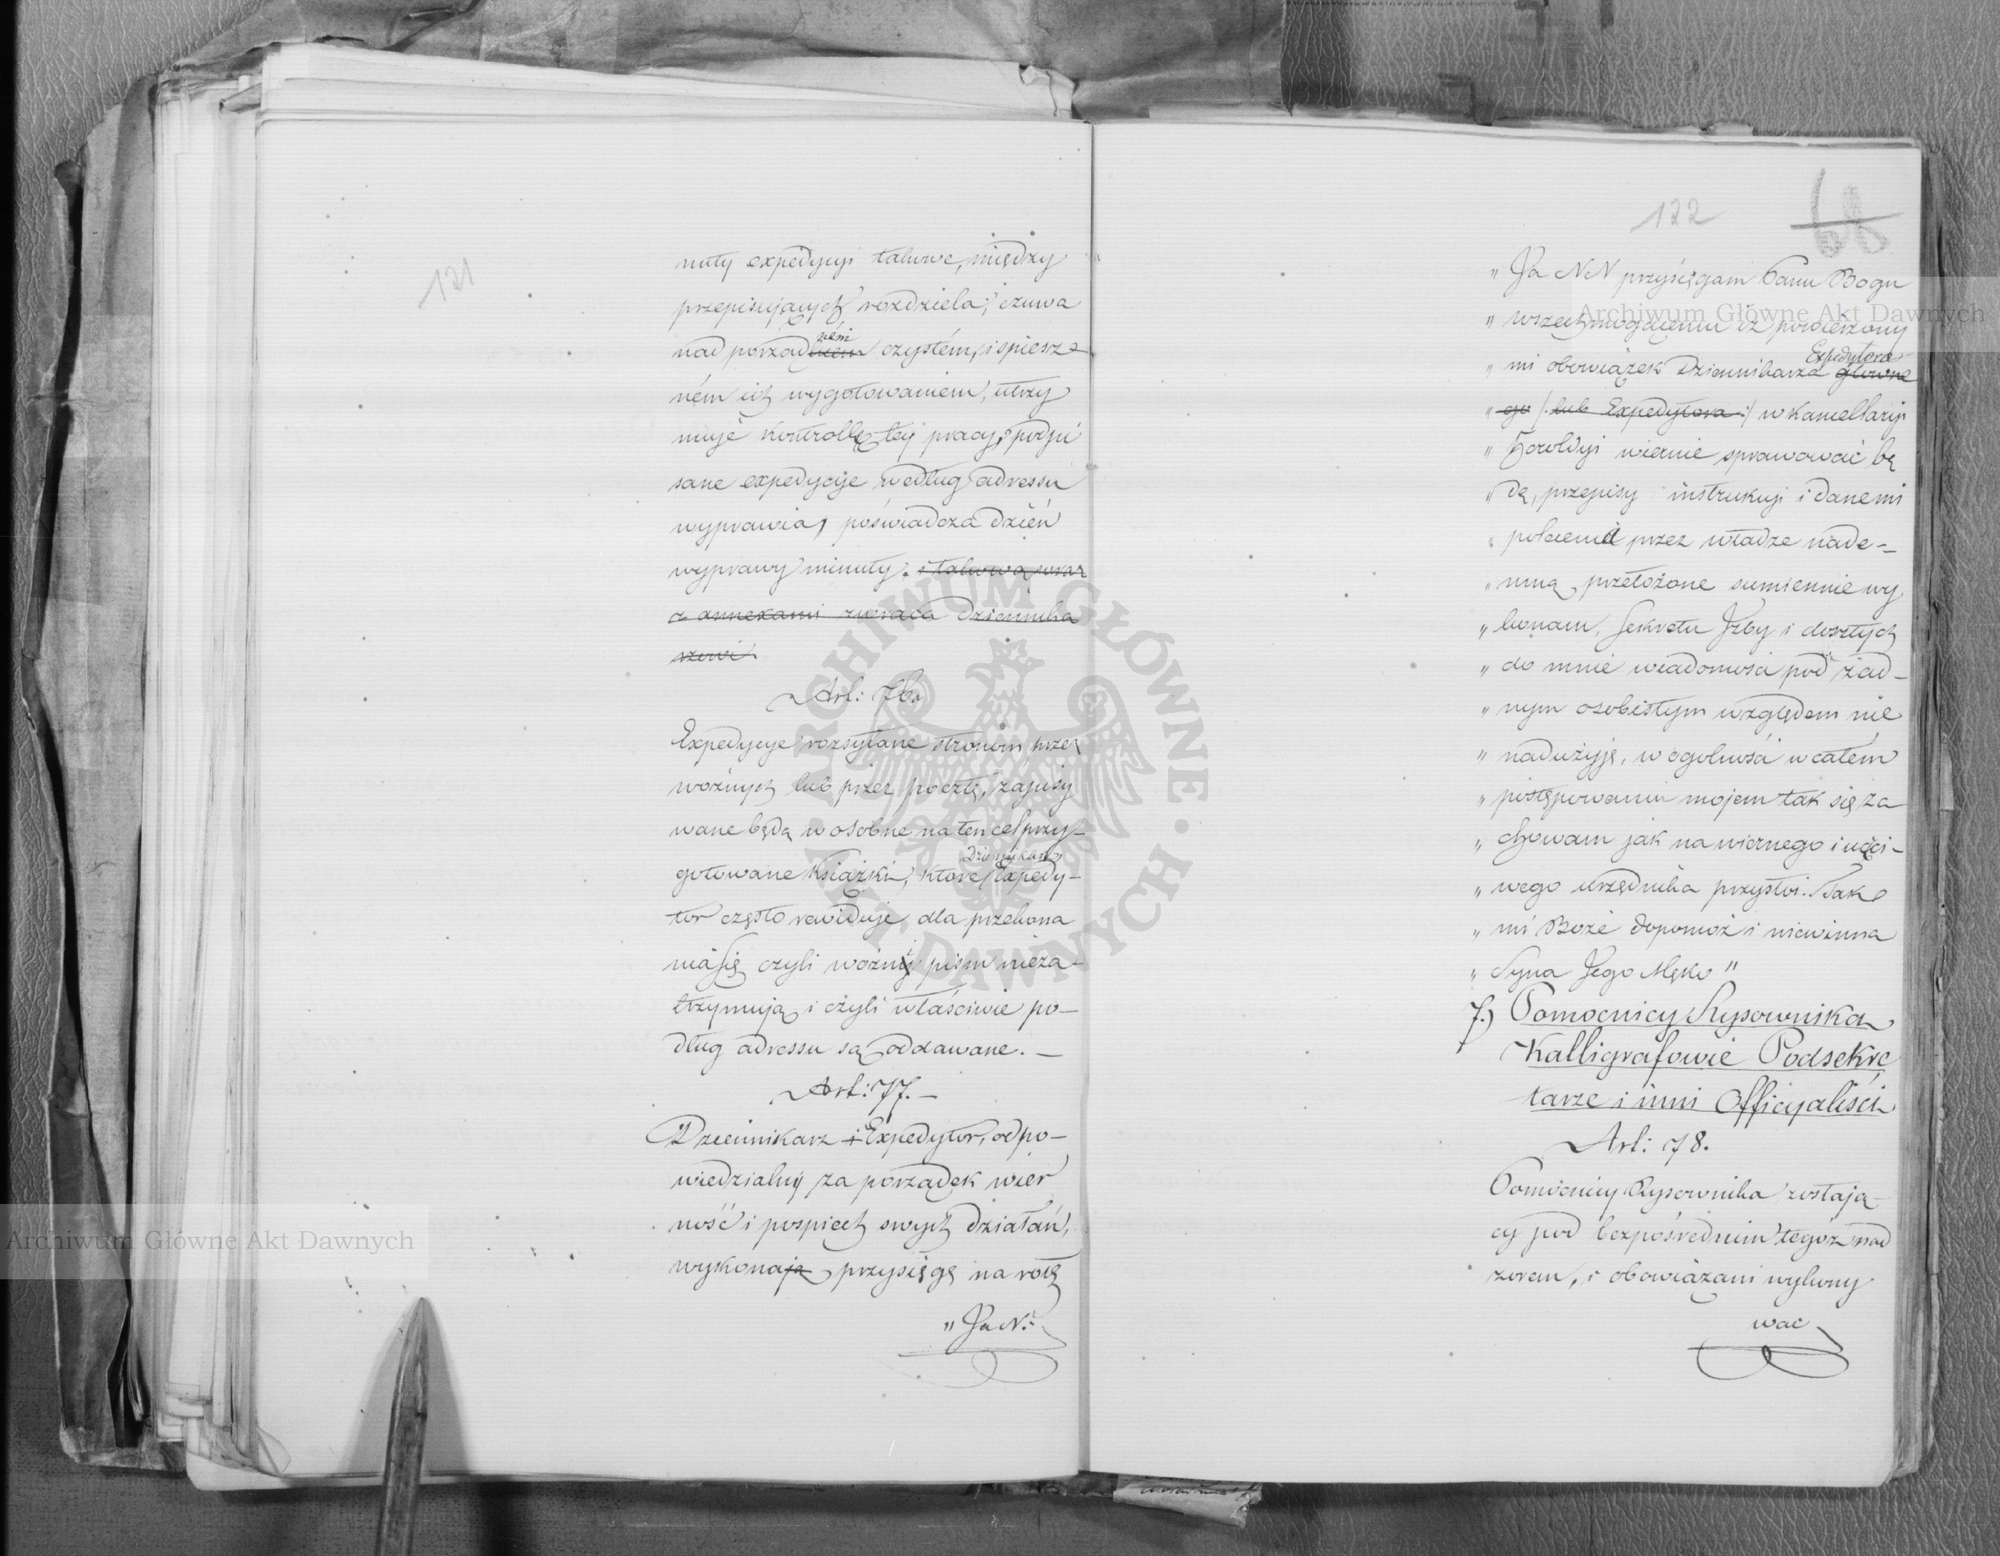 121
nuty expedycyi takowe, między
przepisujących rozdziela; czuwa
nad porząd nem czystém, i spiesz-
ném ich wygotowaniem, utrzy
muje kontrollę tej pracy, podpi
sane expedycije według adressu
wyprawia, poświadcza dzień
wyprawy minuty. i takową wraz
z annexami zwraca Dziennika
rzowi.
Art: 76.
Expedycye rozsyłane stronom przez
woźnych lub przez pocztę, zapisy
wane będą w osobne na ten cel przy-
Dziennikarz
gotowane książki, które Expedy-
tor często rewiduje dla przekona
nia się czyli woźni pism nieza-
trzymują i czyli właściwie po-
dług adressu są oddawane. —
Art: 77. —
Dziennikarz i Expedytor, odpo-
wiedzialny za porządek wier
ność i pospiech swych działań,
wykonają przysięgę na rotę
„Ja N:
122
68
„ Ja NN przysięgam Panu Bogu
„ wszechmogącemu iż powierzony
Expedytora
„ mi obowiązek Dziennikarza główne
„ go /: lub Expedytora :/ w Kancellaryi
„ Heroldyi wiernie sprawować bę
„ dę, przepisy instrukcyi i dane mi
„ polecenia przez władze nade-
„ mną przełożone sumiennie wy
„ konam, sekretu Izby i doszłych
„ do mnie wiadomości pod żad-
„ nym osobistym względem nie
„ nadużyję, w ogólności w całém
„ postępowaniu mojem tak się za
„ chowam jak na wiernego i uczci-
„ wego urzędnika przystoi. Tak
„ mi Boże dopomóż i niewinna
„ Syna Jego Męko "
7.) Pomocnicy Rysownika
Kalligrafowie Podsekre
tarze i inni Officyaliści
Art: 78.
Pomocnicy Rysownika zostają-
cy pod bezpośrednim tegoż nad
zorem, i obowiązani wykony
wać
Archiwum Główne Akt Dawnych
Archiwum Główne Akt Dawnych
ARCHIWUM GŁÓWNE AKT DAWNYCH